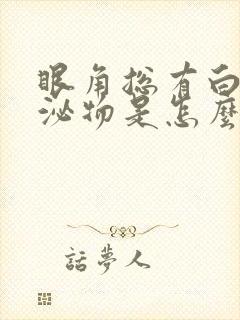 眼角總有白
泌物是怎麼
話夢人